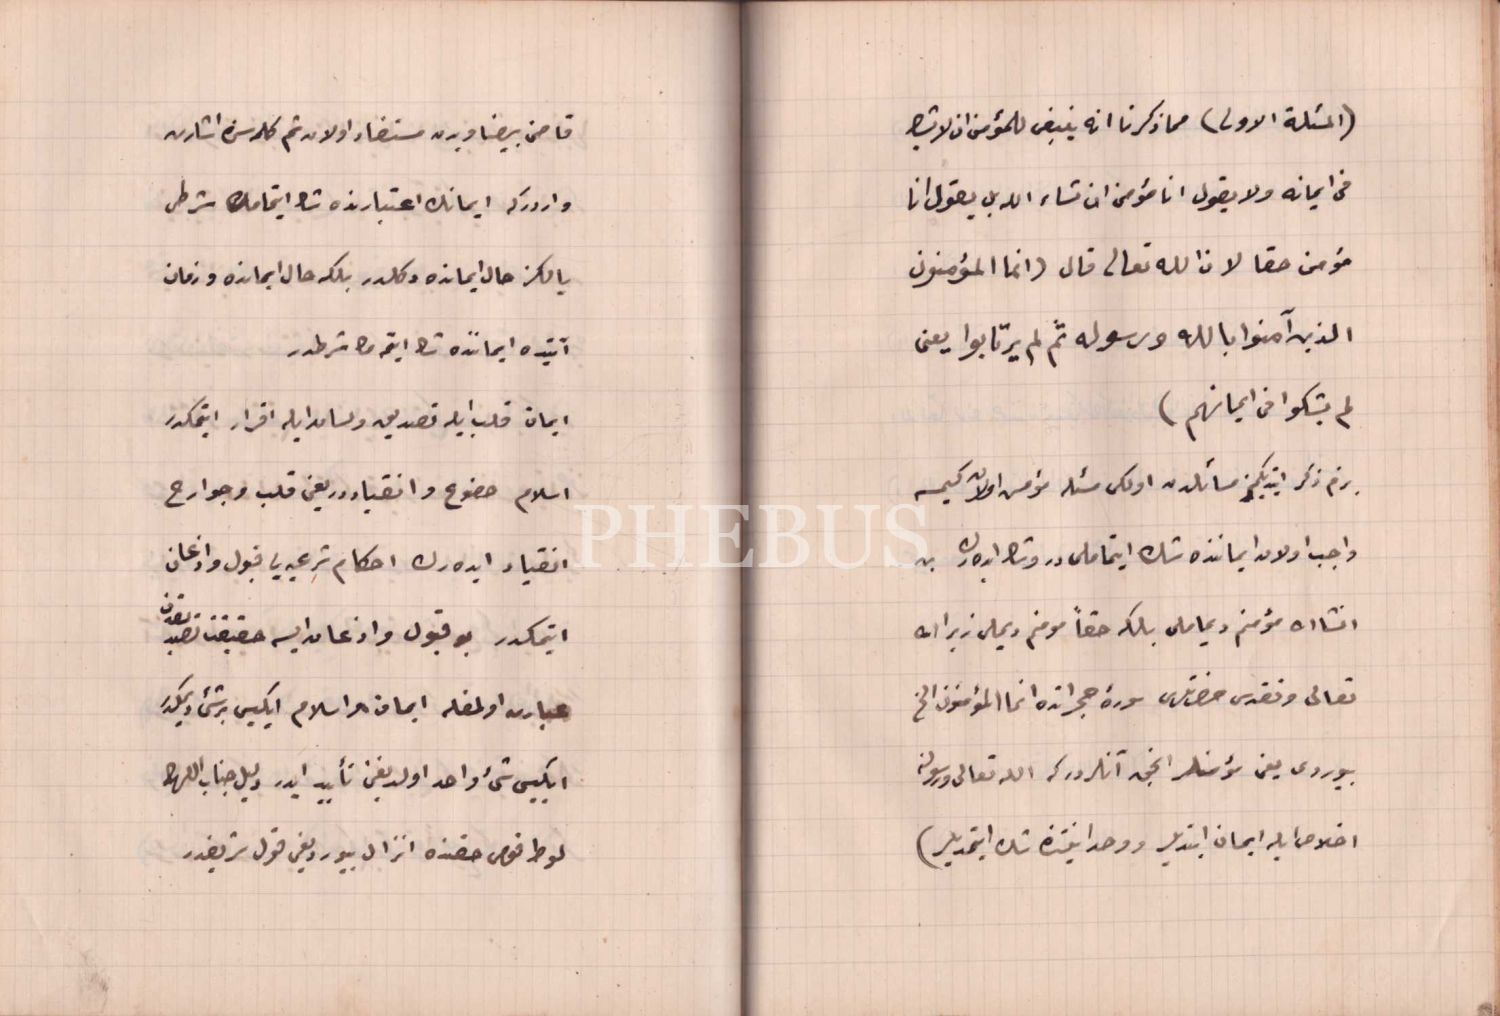 (المسئلة الاولى) مما ذكرنا انه ينبغى للمؤمن ان لا يشك
فى ايمانه ولا يقول انا مؤمن ان شاء الله بل يقول انا
مؤمن حقا لان الله تعالى قال (انما المؤمنون
الذين آمنوا بالله ورسوله ثم لم يرتابوا يعنى
لم يشكوا فى ايمانهم)
بزم ذكر ايتديكمز مسائلدن اولكى مسئله مؤمن اولان كيمسه
واجب اولان ايماننده شك ايتماملى در وشك ايدهرك بن
انشاالله مؤمنم ديماملى بلكه حقاً مومنم ديملى زيرا الله
تعالى وتقدس حضرتلرى سورهٔ حجراتده انما المؤمنون الخ
بيوردى يعنى مؤمنلر انجق آنلردركه الله تعالى ورسولنه
اخلاص ايله ايمان ايتديلر ووحدانيتنده شك ايتمديلر)
قاضى بيضاويدن مستفاد اولان ثم كلمهسنده اشارت
واردركه ايمانك اعتبارنده شك ايتمامك شرطى
يالكز حال ايمانده دكلدر بلكه حال ايمانده وزمان
آتيده ايماننده شك ايتمهمك شرطدر
ايمان قلب ايله تصديق ولسان ايله اقرار ايتمكدر
اسلام خضوع وانقياددر يعنى قلب وجوارح
انقياد ايدهرك احكام شرعيهيى قبول واذعان
ايتمكدر بو قبول واذعان ايسه حقيقت تصديقدن
عبارت اولمغله ايمان اسلام ايكيسى برشئ ديمكدر
ايكيسى شئ واحد اولديغنى تأييد ايدر دليل جناب اللهك
لوط قومى حقنده انزال بيورديغى قول شريفدر
PHEBUS